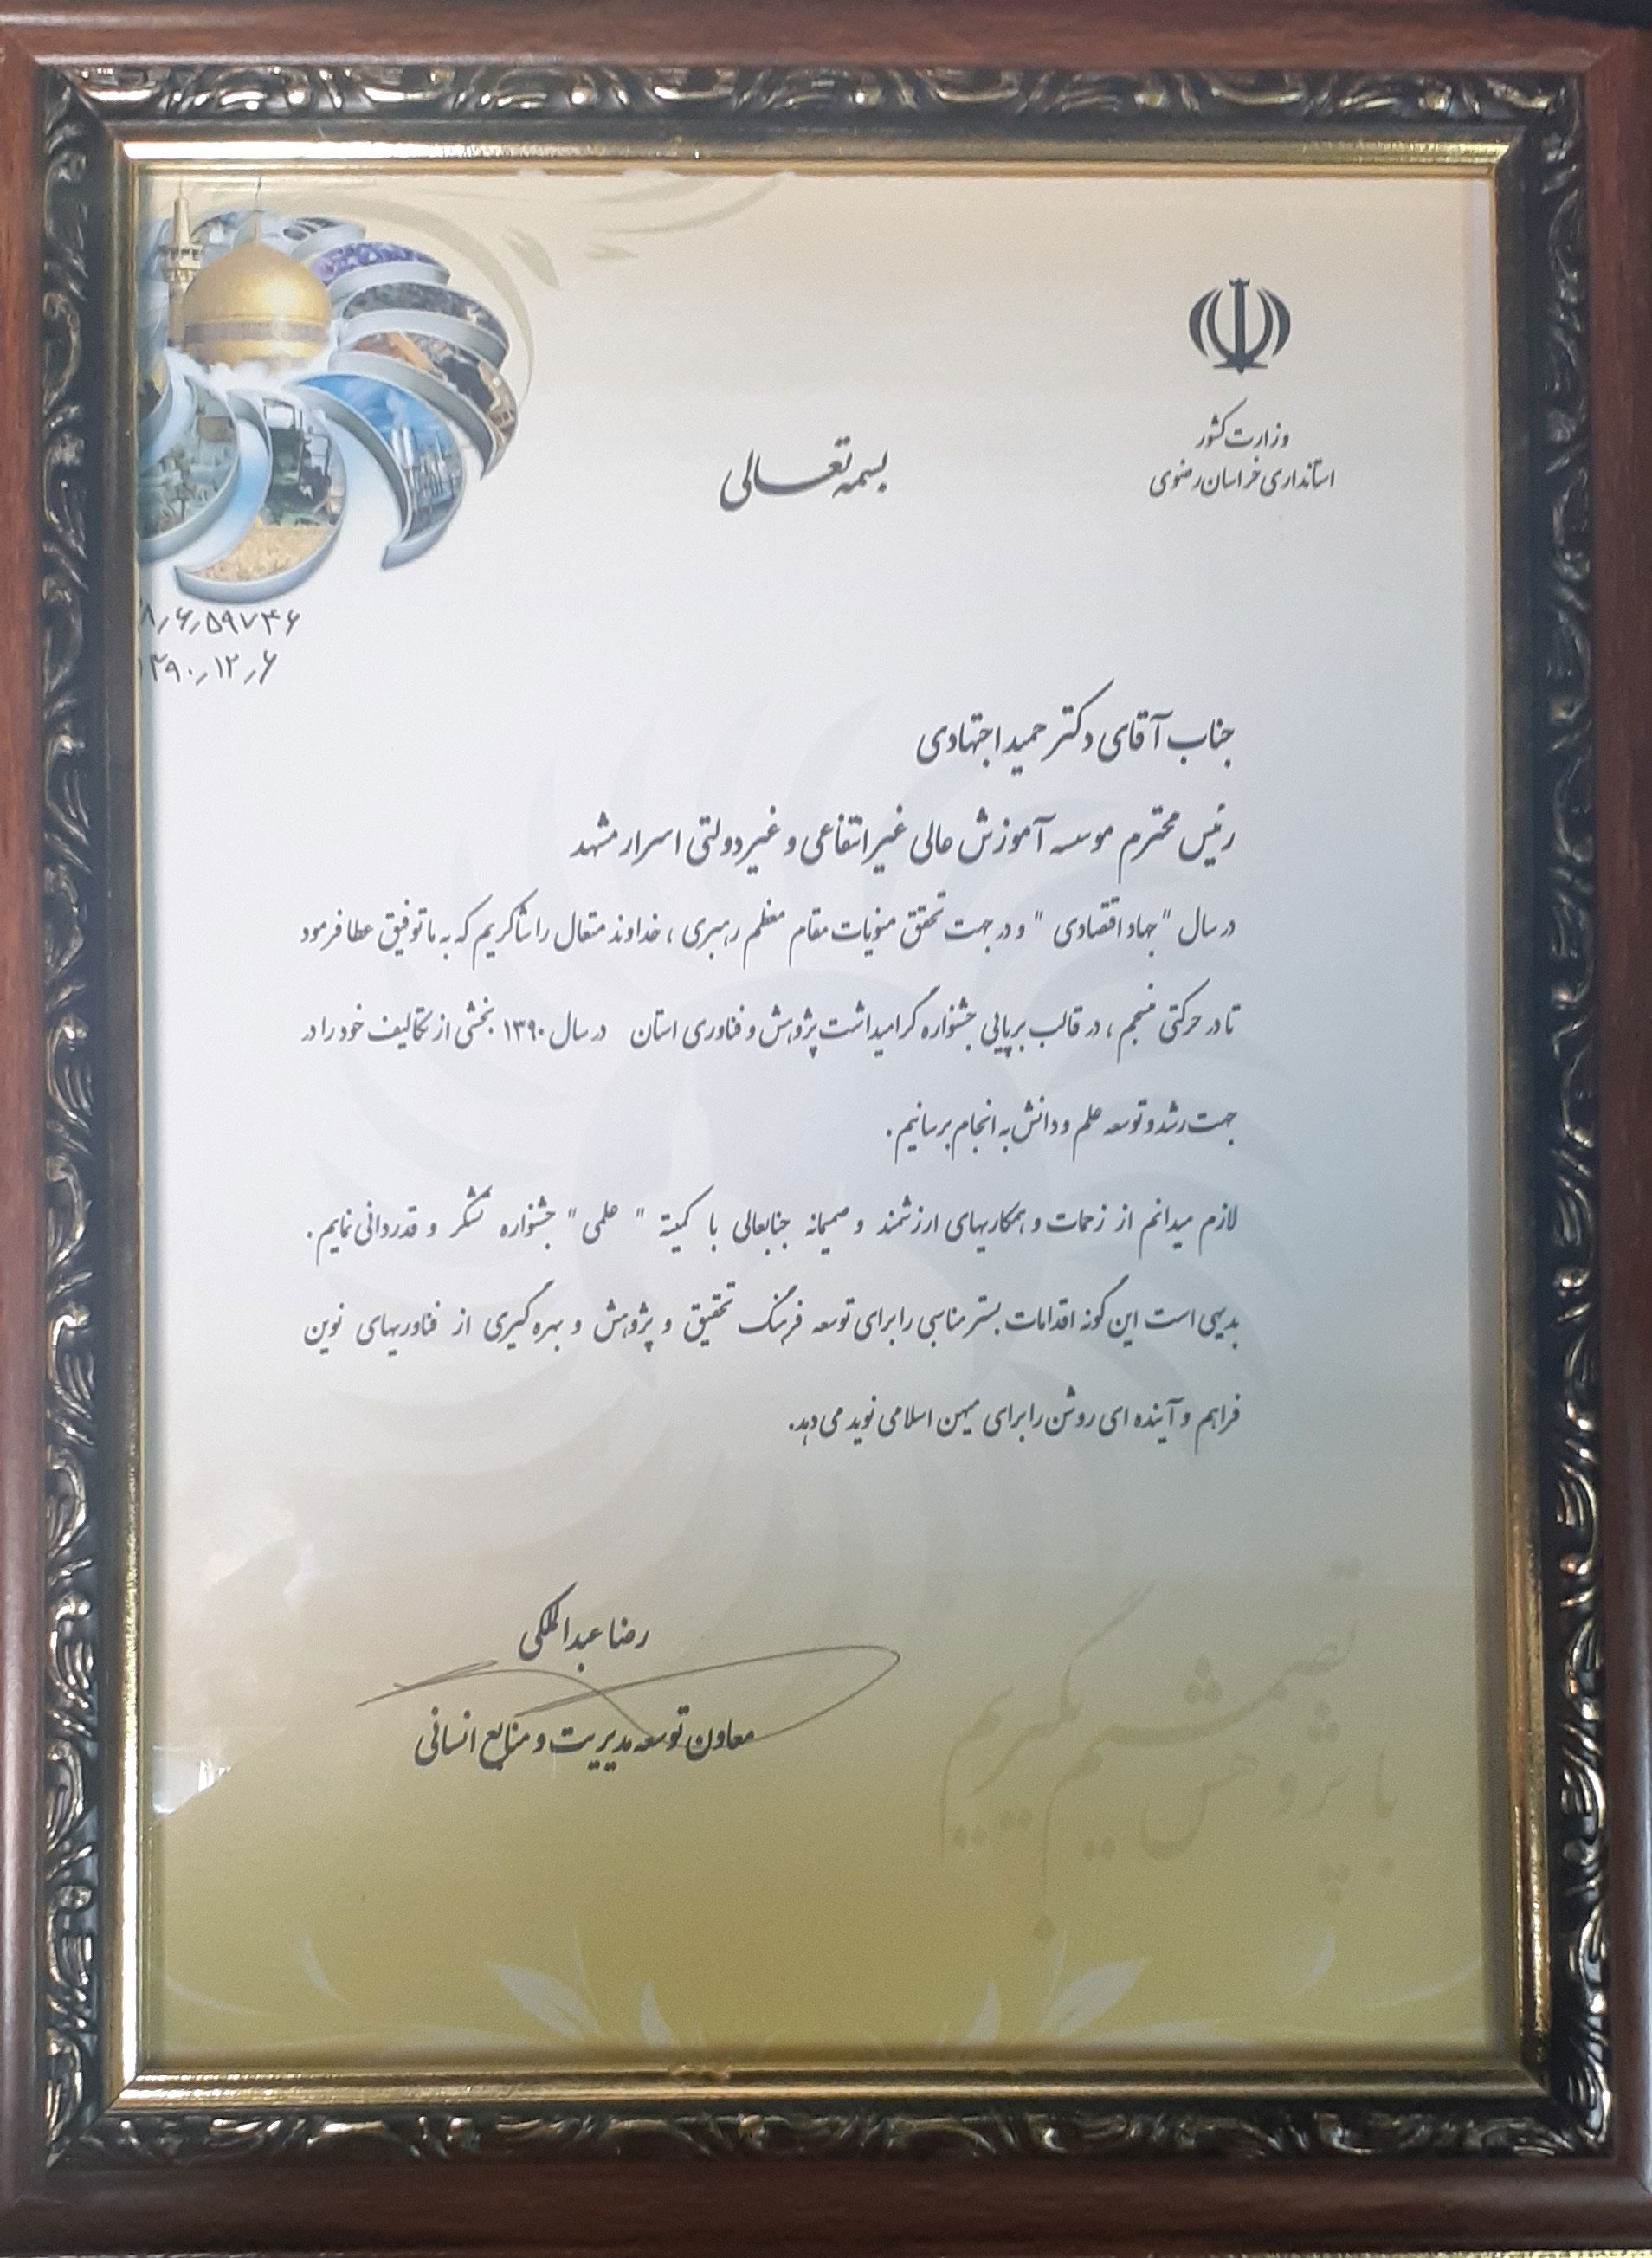 وزارت کشور
استانداری خراسان رضوی
بسمه تعالی
۸/۶/۵۹۷۴۶
۱۳۹۰/۱۲/۶
جناب آقای دکتر حمید اجتهادی
رئیس محترم موسسه آموزش عالی غیرانتفاعی و غیردولتی اسرار مشهد
در سال "جهاد اقتصادی" و در جهت تحقق منویات مقام معظم رهبری ، خداوند متعال را شاکریم که به ما توفیق عطا فرمود
تا در حرکتی منسجم ، در قالب برپایی جشنواره گرامیداشت پژوهش و فناوری استان در سال ۱۳۹۰ بخشی از تکالیف خود را در
جهت رشد و توسعه علم و دانش به انجام برسانیم .
لازم میدانم از زحمات و همکاریهای ارزشمند و صمیمانه جنابعالی با کمیته " علمی " جشنواره تشکر و قدردانی نمایم .
بدیهی است این گونه اقدامات بستر مناسبی را برای توسعه فرهنگ تحقیق و پژوهش و بهره گیری از فناوریهای نوین
فراهم و آینده ای روشن را برای میهن اسلامی نوید می دهد.
رضا عبدالملکی
معاون توسعه مدیریت و منابع انسانی
با پژوهش تصمیم بگیریم